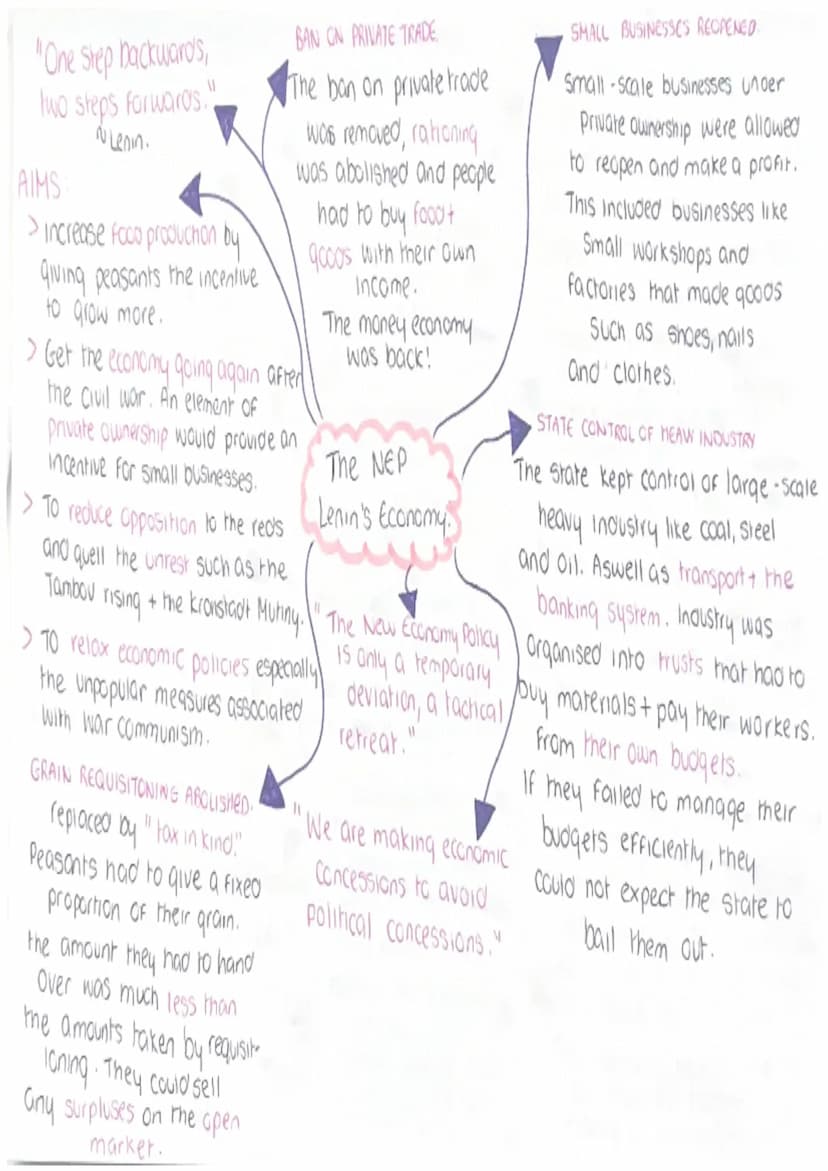 "One step backwards,
two steps forwards."
~ Lenin.
AIMS:
> Increase food production by
giving peasants the incentive
to grow more.
> Get the economy going again after
the civil war. An element of
private ownership would provide an
incentive for small businesses.
> To reduce opposition to the reds
and quell the unrest such as the
Tambov rising + the Kronstadt Mutiny.
> To relax economic policies especially
the unpopular measures associated
with war communism.
GRAIN REQUISITONING ABOLISHED.
replaced by "tax in kind."
Peasants had to give a fixed
proportion of their grain.
the amount they had to hand
over was much less than
the amounts taken by requisit-
ioning. They could sell
any surpluses on the open
market.
BAN ON PRIVATE TRADE
The ban on private trade
was removed, rationing
was abolished and people
had to buy food +
goods with their own
income.
The money economy
was back!
The NEP
Lenin's Economy.
"The New Economy Policy
is only a temporary
deviation, a tactical
retreat."
"We are making economic
concessions to avoid
political concessions."
SMALL BUSINESSES REOPENED.
Small-scale businesses under
private ownership were allowed
to reopen and make a profit.
This included businesses like
small workshops and
factories that made goods
such as shoes, nails
and clothes.
STATE CONTROL OF HEAVY INDUSTRY
The state kept control of large-scale
heavy industry like coal, steel
and oil. Aswell as transport + the
banking system. Industry was
organised into trusts that had to
buy materials + pay their workers.
from their own budgets.
If they failed to manage their
budgets efficiently, they
could not expect the state to
bail them out.